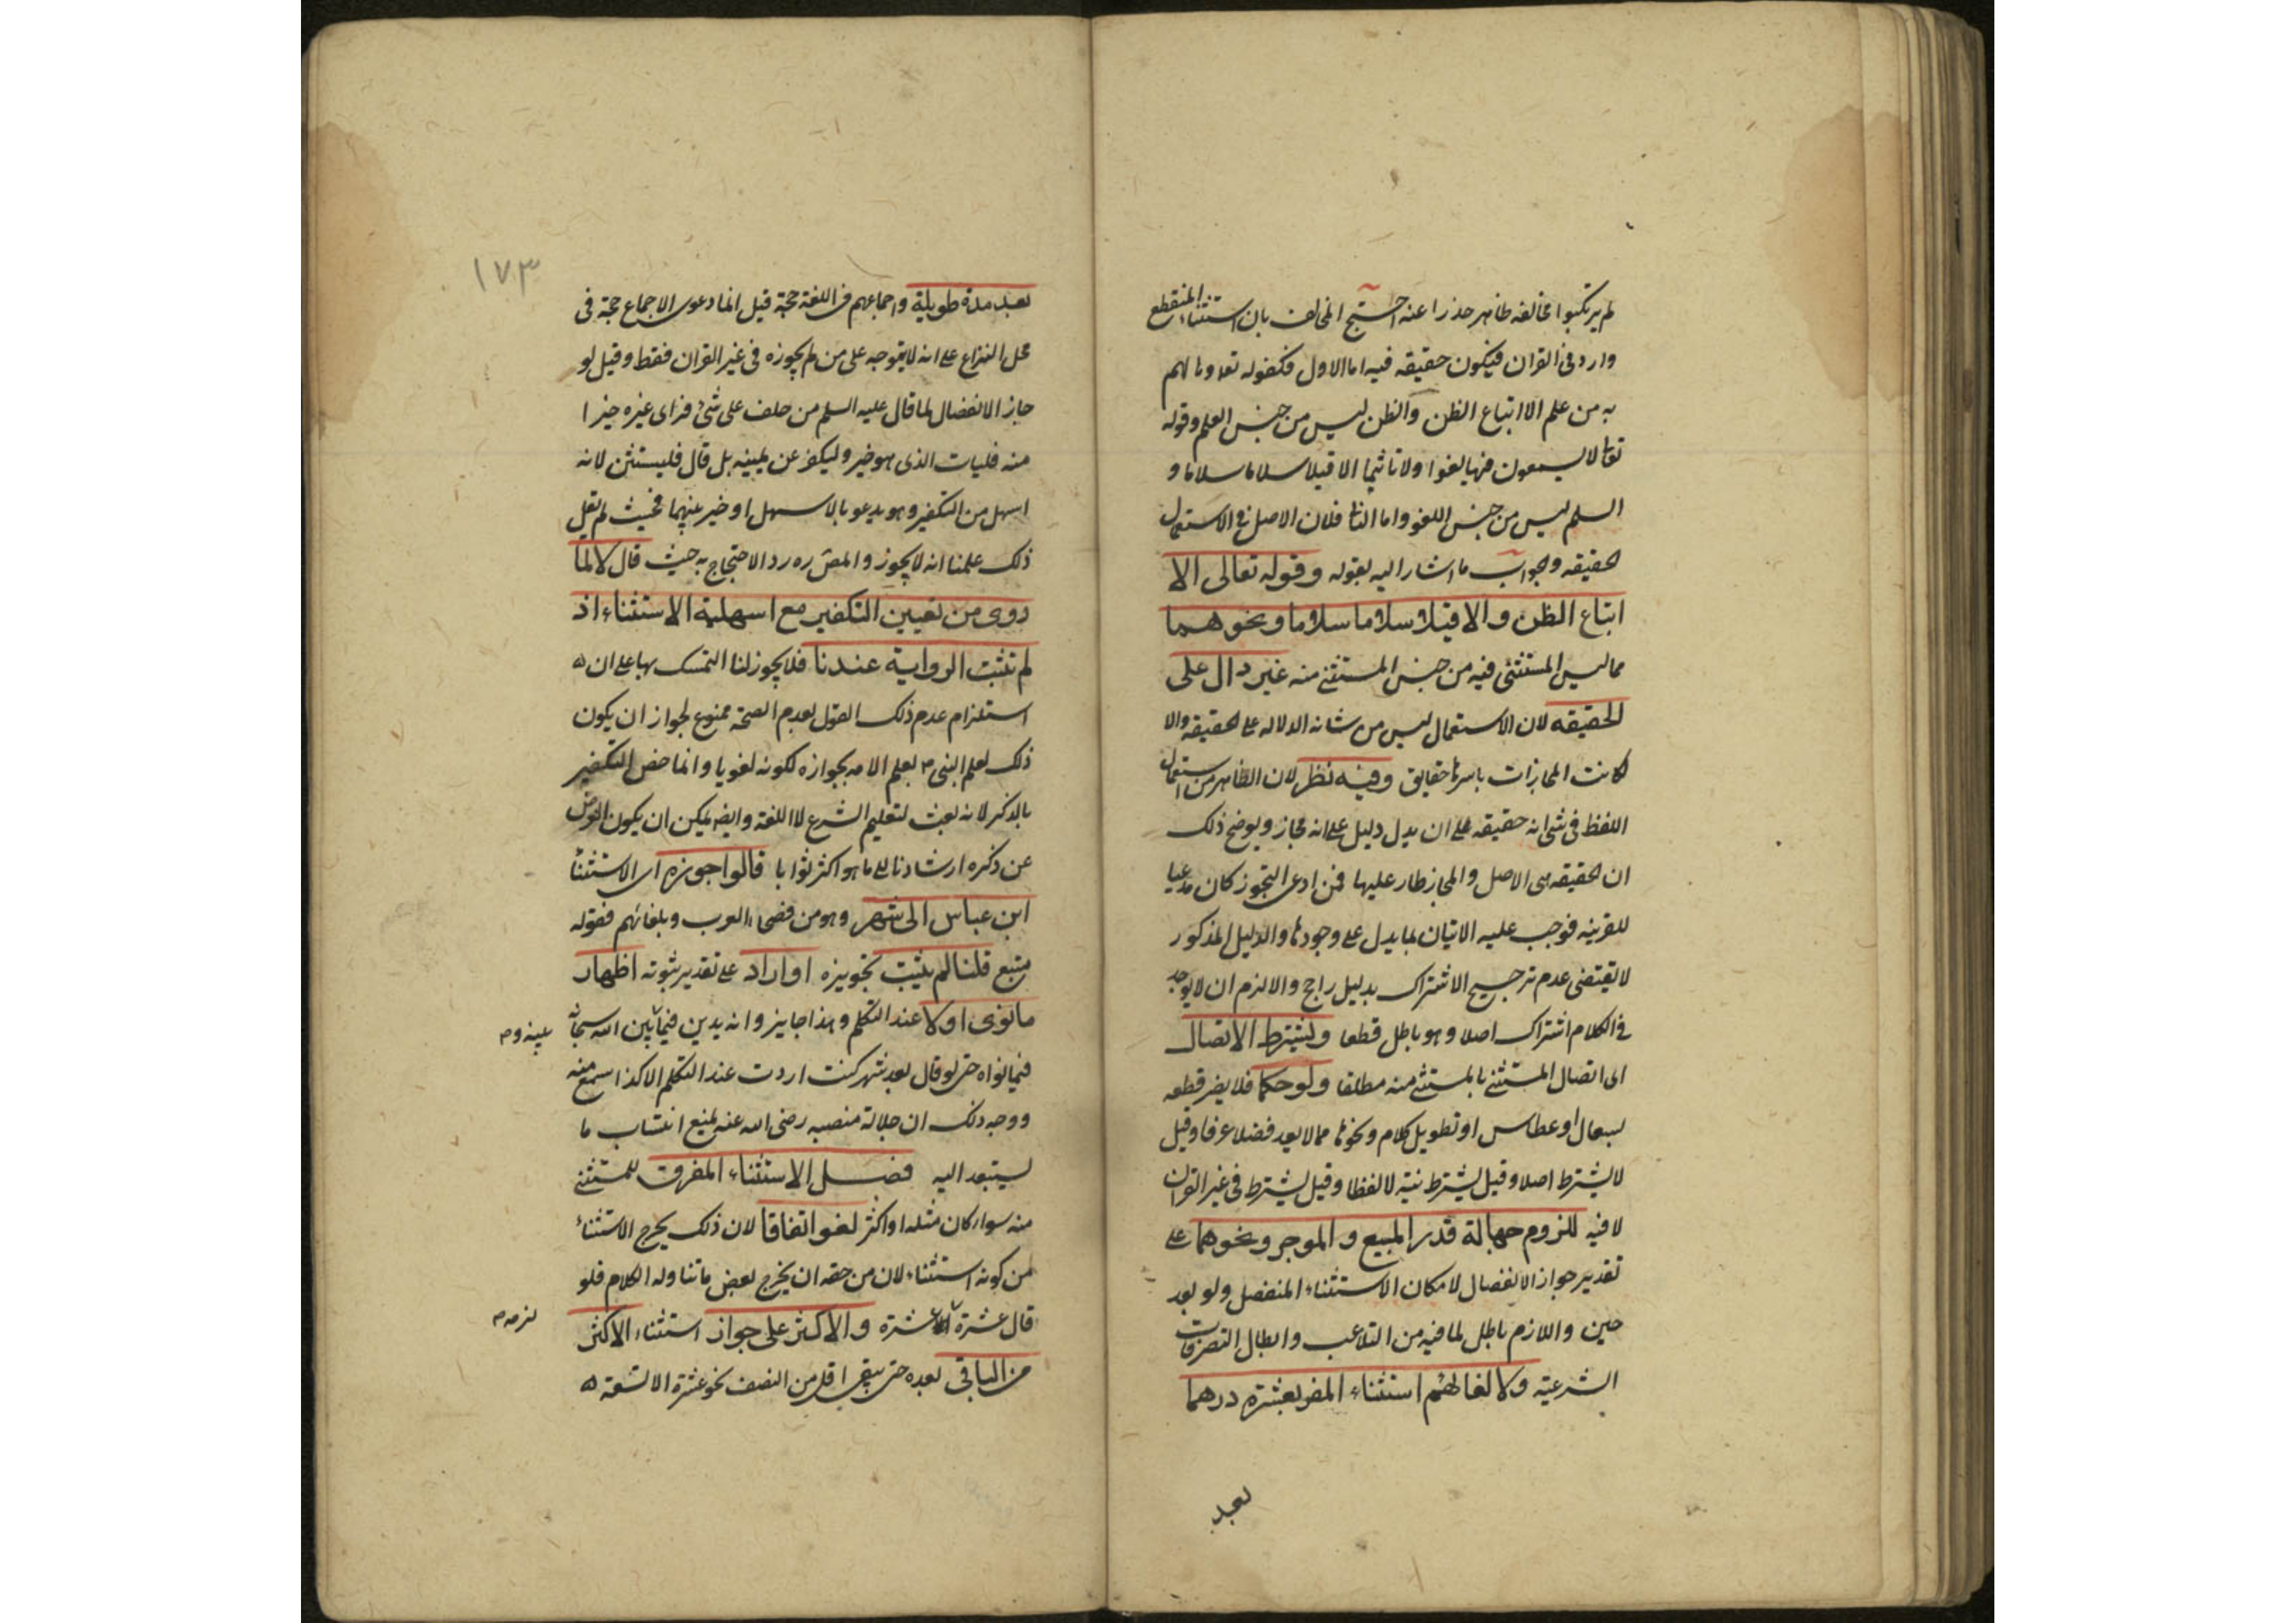 لم يرتكبوا مخالفة ظاهر حذرا عنه احتج المخالف بان استثناء المنقطع
وارد في القران فيكون حقيقه فيه اما الاول فكقوله تعه وما لهم
به من علم الا اتباع الظن والظن ليس من جنس العلم وقوله
تعالى لا يسمعون فيها لغوا ولا تاثيما الا قيلا سلاما سلاما و
السلم ليس من جنس اللغو واما الثانى فلان الاصل في الاستعمال
الحقيقه والجواب ما اشار اليه بقوله وقوله تعالى الا
اتباع الظن والا قيلا سلاما سلاما ونحوهما
مما ليس المستثنى فيه من جنس المستثنى منه غير دال على
الحقيقه لان الاستعمال ليس من شانه الدلاله على الحقيقه والا
لكانت المجازات باسرها حقايق وفيه نظر لان الظاهر من استعمال
اللفظ فى شى انه حقيقه الى ان يدل دليل على انه مجاز ويوضح ذلك
ان الحقيقه هى الاصل والمجاز طار عليها فمن ادعى التجوز كان مدعيا
للقرينه فوجب عليه الاتيان بما يدل على وجودها والدليل المذكور
لا يقتضى عدم ترجيح الاشتراك بدليل راجح والا لزم ان لا يوجد
في الكلام اشتراك اصلا وهو باطل قطعا ويشترط الاتصال
اى اتصال المستثنى بالمستثنى منه مطلقا ولو حكما فلا يضر قطعه
بسعال او عطاس او تطويل كلام ونحوها مما لا يعد فصلا عرفا وقيل
لا يشترط اصلا وقيل يشترط نية لا لفظا وقيل يشترط فى غير القران
لا فيه للزوم جهالة قدر المبيع والموجر ونحوهما على
تقدير جواز الانفصال لامكان الاستثناء المنفصل ولو بعد
حين واللازم باطل لما فيه من التلاعب وابطال التصرفات
الشرعية ولالغائهم استثناء المقر بعشرة درهما
بعد
١٧٣
بعد مدة طويلة واجماعهم فى اللغة حجة قيل انما دعوى الاجماع حجة فى
محل النزاع على انه لا يتوجه على من لم يجوزه فى غير القران فقط وقيل لو
جاز الانفصال لما قال عليه السلم من حلف على شئ فراى غيره خيرا
منه فليات الذى هو خير وليكفر عن يمينه بل قال فليستثن لانه
اسهل من التكفير وهو يدعو بالاسهل او خير بينهما فحيث لم يقل
ذلك علمنا انه لا يجوز والمص ره رد الاحتجاج به حيث قال لا لما
روى من تعيين التكفير مع اسهلية الاستثناء اذ
لم تثبت الرواية عندنا فلا يجوز لنا التمسك بها على ان
استلزام عدم ذلك القول لعدم الصحة ممنوع لجواز ان يكون
ذلك لعلم النبى م بعلم الامه بجوازه لكونه لغويا وانما خص التكفير
بالذكر لانه بعث لتعليم الشرع لا اللغة وايضا يمكن ان يكون الغرض
عن ذكره ارشادنا الى ما هو اكثر ثوابا قالوا جوزه اى الاستثنأ
ابن عباس الى شهر وهو من فصحاء العرب وبلغائهم فقوله
متبع قلنا لم يثبت تجويزه او اراد على تقدير ثبوته اظهار
ما نوى اولا عند التكلم وهذا جايز وانه يدين فيما بين الله سبحانه
بينه وم
فيما نواه حتى لو قال بعد شهر كنت اردت عند التكلم الا كذا سمع منه
ووجه ذلك ان جلالة منصبه رضى الله عنه يمنع انتساب ما
يستبعد اليه فصل الاستثناء المغرق للمستثنى
منه سواء كان مثله او اكثر لغو اتفاقا لان ذلك يخرج الاستثناء
من كونه استثناء لان من حقه ان يخرج بعض ما تناوله الكلام فلو
قال عشرة الا عشرة والاكثر على جواز استثناء الاكثر
من الباقى بعده حتى يبقى اقل من النصف نحو عشرة الا تسعة